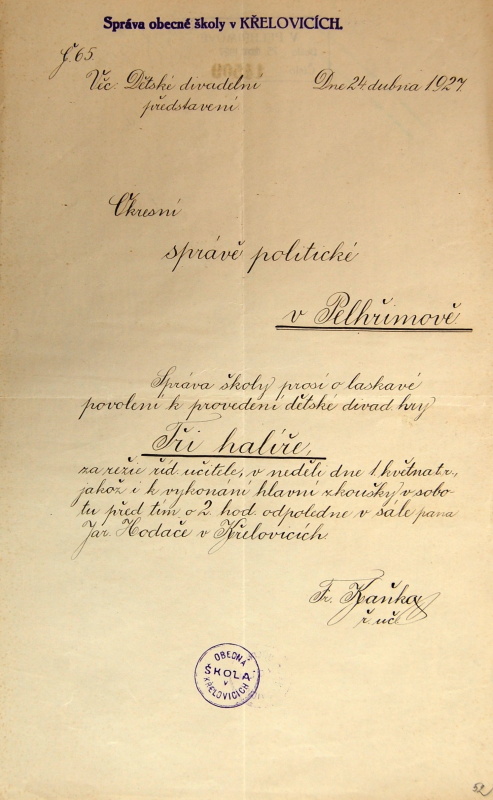 Správa obecné školy v KŘELOVICÍCH.
Č 65.
Věc: Dětské divadelní
představení.
Dne 24. dubna 1927.
Okresní
správě politické
v Pelhřimově.
Správa školy prosí o laskavé
povolení k provedení dětské divad. hry
Tři halíře,
za režie říd. učitele, v neděli dne 1. května t.r.,
jakož i k vykonání hlavní zkoušky v sobo-
tu před tím o 2. hod. odpoledne v sále pana
Jar. Hodače v Křelovicích.
Fr. Kaňka
ř. uč.
OBECNÁ
ŠKOLA
v
KŘELOVICÍCH
52